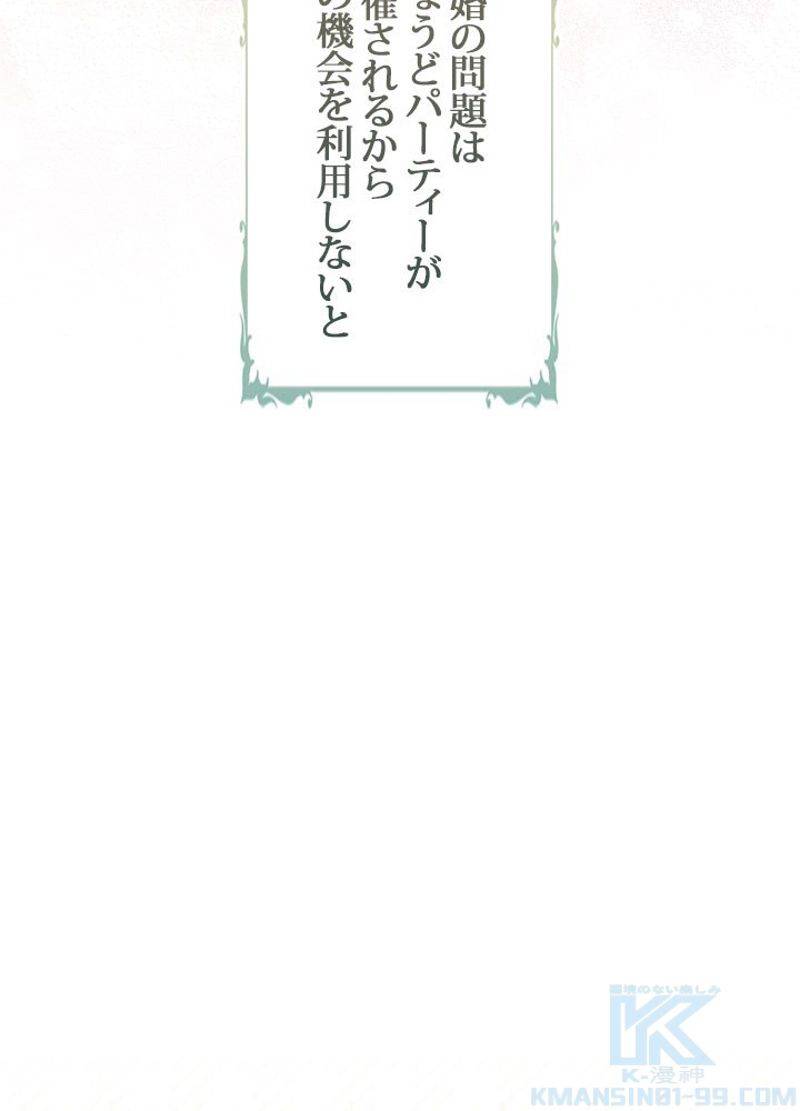 婚の問題は
ょうどパーティーが
催されるから
の機会を利用しないと
環境のない楽しみ
K-漫神
KMANSIN01-99.COM